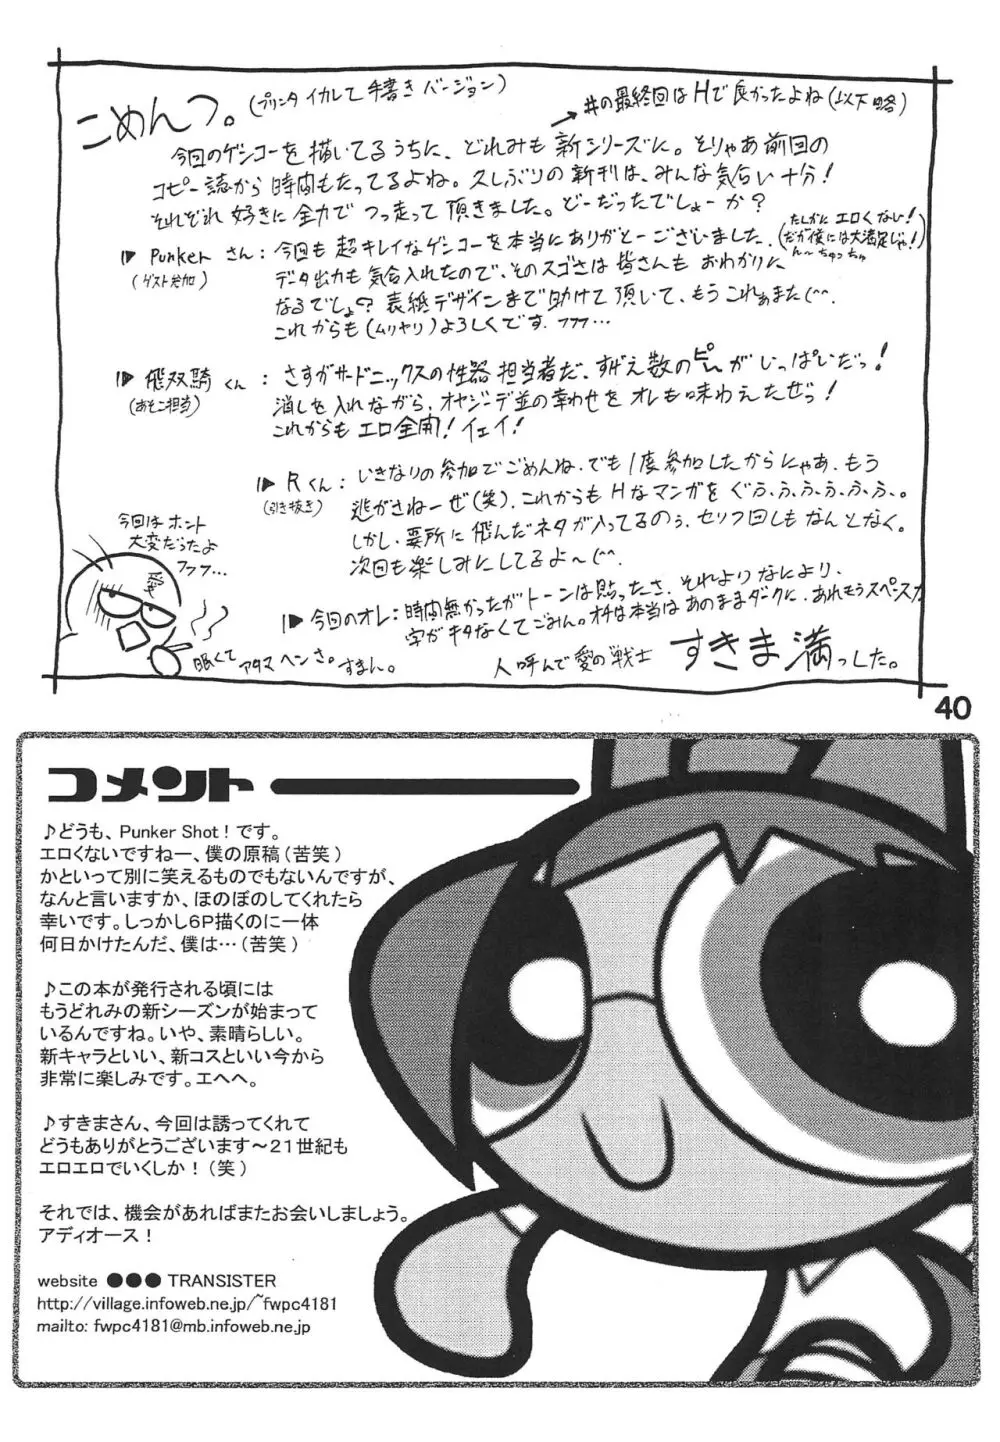 こめんつ。(プリンタイカレて手書きバージョン)
→#の最終回はHで良かったよね(以下略)
今回のゲンコーを描いてるうちに、どれみも新シリーズに。そりゃあ前回の
コピー誌から時間もたってるよね。久しぶりの新刊は、みんな気合い十分！
それぞれ好きに全力でつっ走って頂きました。どーだったでしょーか？
▶Punkerさん：今回も超キレイなゲンコーを本当にありがとーございました。(たしかにエロくない！
(ゲスト参加)
だが僕には大満足じゃ！)
データ出力も気合入れたので、そのスゴさは皆さんもおわかりに
ん～ちゅっちゅ
なるでしょ？表紙デザインまで助けて頂いて、もうこれぁまた(^^
これからも(ムリヤリ)よろしくです。フフフ…
▶飛双騎くん：さすがサードニックスの性器担当者だ、すげえ数のピーがいっぱいだっ！
(あそこ担当)
消しを入れながら、オヤジーデ並の幸わせをオレも味わえたぜっ！
これからもエロ全開！イェイ！
▶Rくん：いきなりの参加でごめんね。でも1度参加したからにゃあ、もう
(引き抜き)
逃がさねーぜ(笑)。これからもHなマンガをぐふふ、ふ、ふ、ふ、ふ、ふ、。
しかし、要所に飛んだネタが入ってるのぅ、セリフ回しもなんとなく。
次回も楽しみにしてるよ～(^^.
今回はホント
大変だったよ
フフフ…
愛
眠くてアタマヘンさ。すまん。
▶今回のオレ：時間無かったがトーンは貼ったさ、それよりなにより、
字がキタなくてごみん。オチは本当はあのままダークに、あれもうスペースが
人呼んで愛の戦士 すきま満っした。
40
コメント
♪どうも、Punker Shot！です。
エロくないですねー、僕の原稿（苦笑）
かといって別に笑えるものでもないんですが、
なんと言いますか、ほのぼのしてくれたら
幸いです。しっかし6P描くのに一体
何日かけたんだ、僕は…（苦笑）
♪この本が発行される頃には
もうどれみの新シーズンが始まって
いるんですね。いや、素晴らしい。
新キャラといい、新コスといい今から
非常に楽しみです。エヘヘ。
♪すきまさん、今回は誘ってくれて
どうもありがとうございます～21世紀も
エロエロでいくしか！（笑）
それでは、機会があればまたお会いしましょう。
アディオース！
website ●●● TRANSISTER
http://village.infoweb.ne.jp/~fwpc4181
mailto: fwpc4181@mb.infoweb.ne.jp